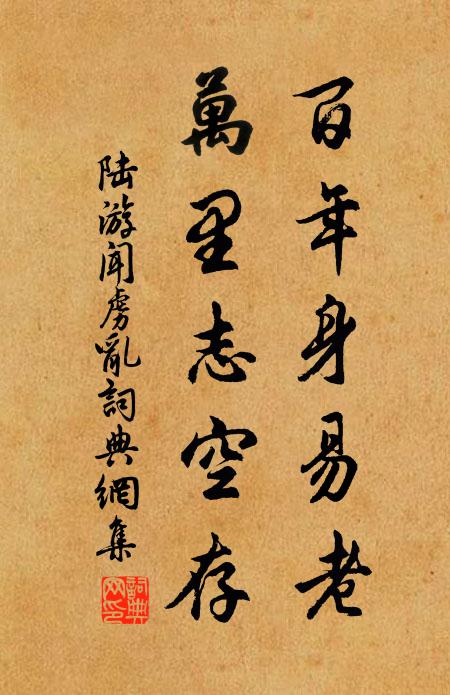 百年身易老
萬里志空存
陆游闻虜亂詞典網集
詞典網印